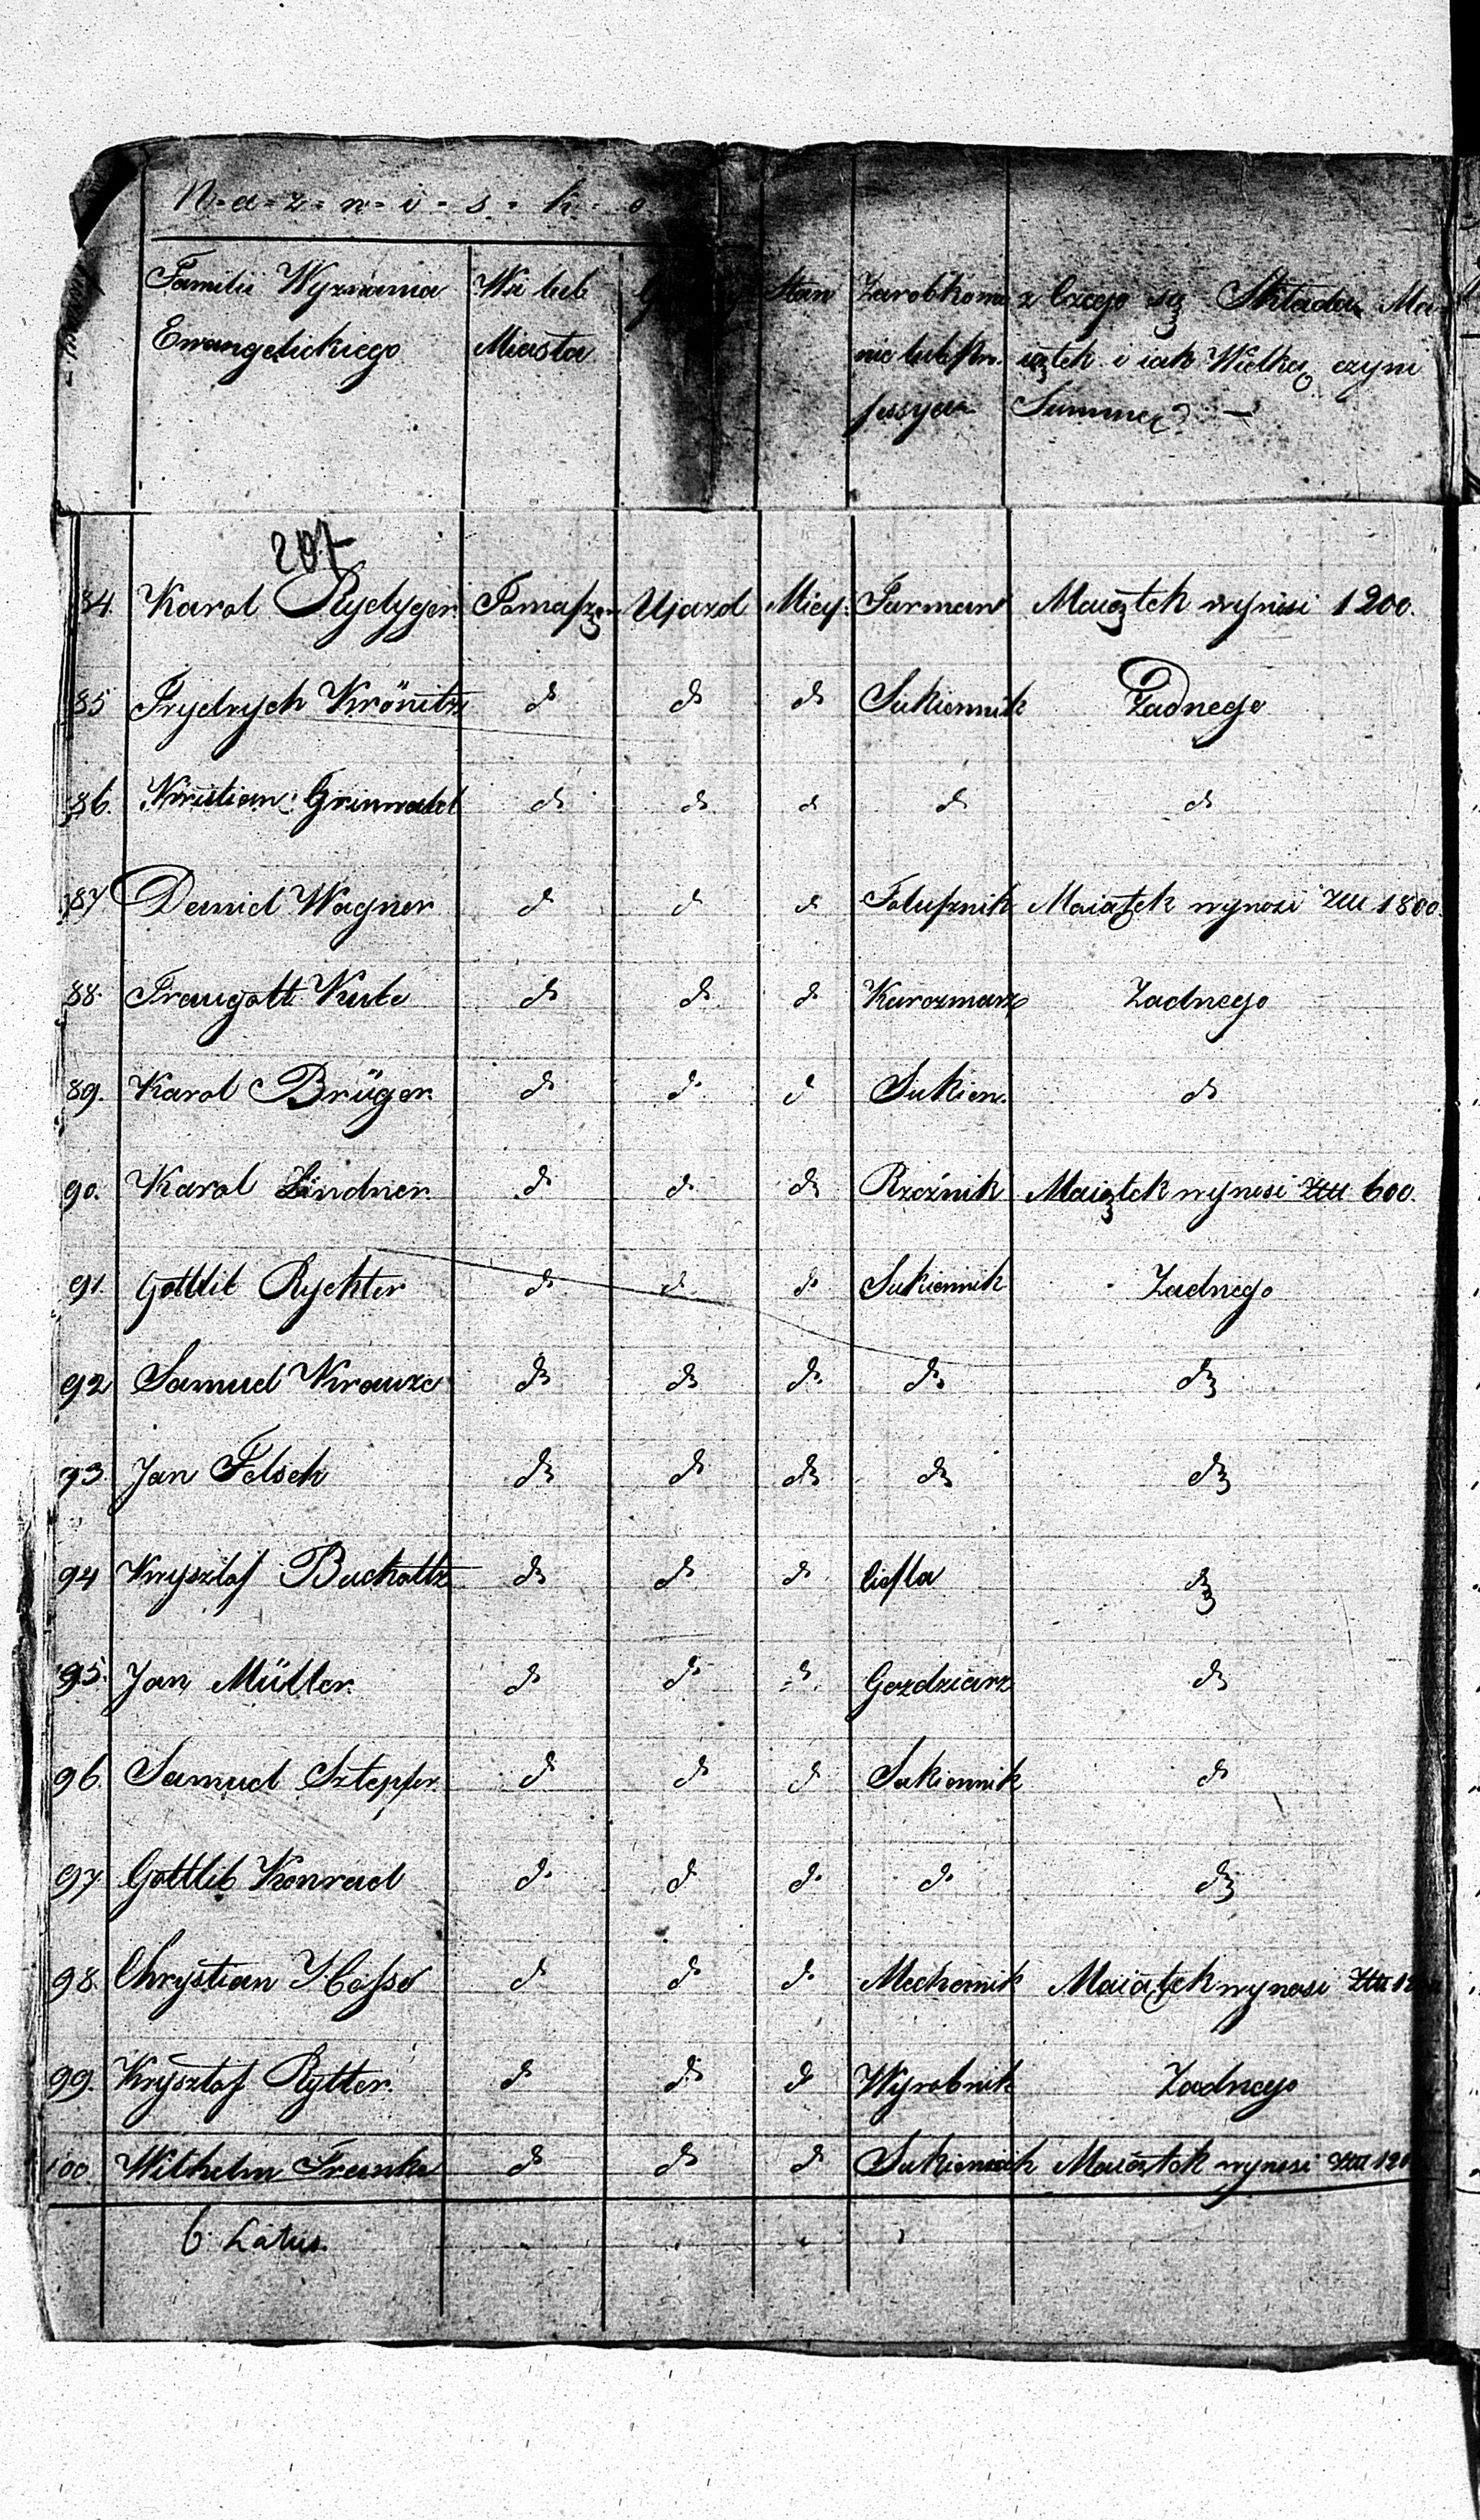 N=a=z=w=i=s=k=o
Familii Wyznania Wsi lub Stan Zarobkowa z Czego się Składa Ma-
Ewangelickiego Miasta nie lub Pro- iątek i iak Wielką czyni
fessya Summę? —
207
84. Karol Rydyger Tomaszow Ujazd Miey: Furman Maiątek wynosi 1200.
85 Frydrych Krönitz d d d Sukiennik Żadnego
86. Kristian Grinwald d d d d d
87 Daniel Wagner d d d Folusznik Maiątek wynosi Złł 1800.
88. Traugott Kube d d d Karczmarz Żadnego
89. Karol Brüger d d d Sukien. d
90. Karol Lindner d d d Rzeźnik Maiątek wynosi Złł 600.
91. Gottlib Rychter d d d Sukiennik Żadnego
92 Samuel Krauze d d d d d
93 Jan Felsch d d d d d
94 Krysztof Bucholtz d d d Ciesla d
95. Jan Müller d d d Gozdziarz d
96. Samuel Sztepfer d d d Sukiennik d
97 Gottlib Konrad d d d d d
98 Chrystian Hesse d d d Mechanik Maiątek wynosi Złł
99. Krysztof Rytter d d d Wyrobnik Żadnego
100 Wilhelm Franke d d d Sukiennik Maiątek wynosi Złł
6. Latus.